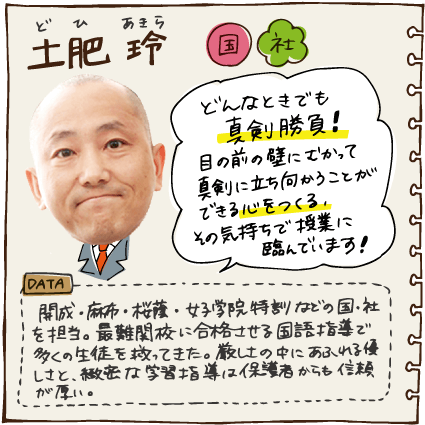 どひ あきら
土肥 玲 国 社
どんなときでも
真剣勝負!
目の前の壁にむかって
真剣に立ち向かうことが
できる心をつくる、
その気持ちで授業に
臨んでいます!
DATA
開成・麻布・桜蔭・女子学院特訓などの国・社
を担当。最難関校に合格させる国語指導で
多くの生徒を救ってきた。厳しさの中にあふれる優
しさと、緻密な学習指導は保護者からも信頼
が厚い。